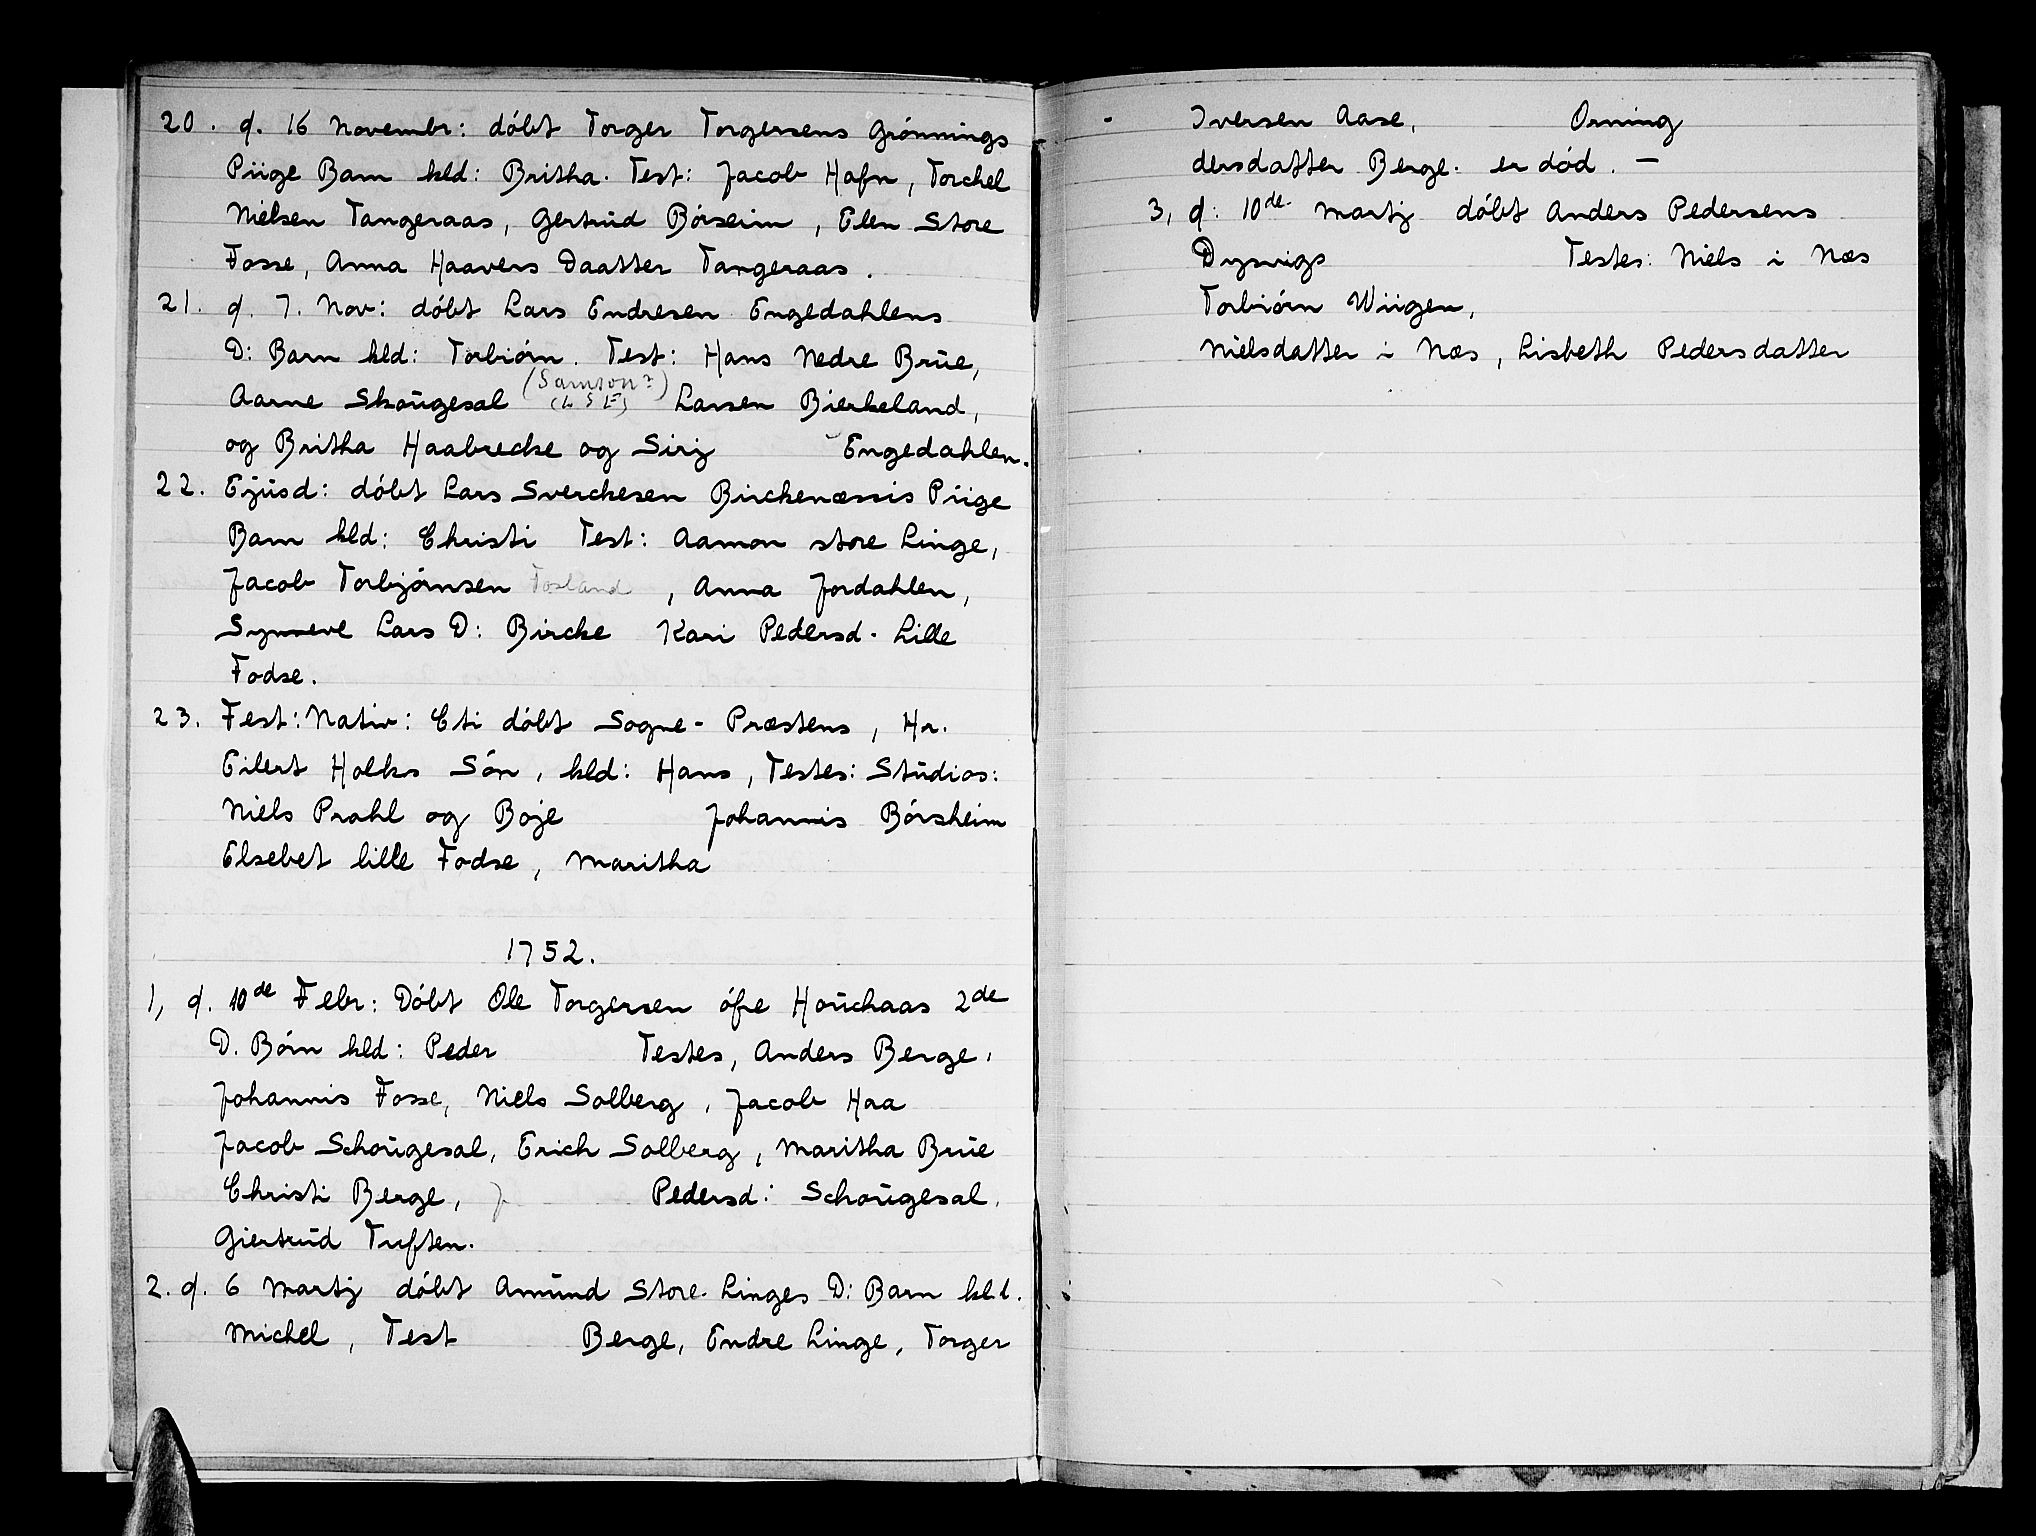 20. d. 16 Novembr: döbt Torger Torgersens Grönnings
Piige Barn kld: Britha. Test: Jacob Hafn, Torchel
Nielsen Tangeraas, Gertrud Börseim, Elen Store
Fosse, Anna Haavers Daatter Tangeraas.
21. d. 7. Nov: döbt Lars Endresen Engedahlens
D: Barn kld: Torbiörn. Test: Hans Nedre Brūe,
(Samson?)
Aarne Skoūgesal (L S E) Larsen Bierkeland,
og Britha Haabrecke og Sirj Engedahlen.
22. Ejūsd: döbt Lars Sverckesen Birckenæssis Piige
Barn kld: Christi Test: Aamon store Linge,
Jacob Torbjörnsen Fosland, Anna Jordahlen,
Synneve Lars D: Bircke Kari Pedersd. Lille
Fodse.
23. Fest: Nativ: Cti döbt Sogne-Præstens, Hr.
Eilert Holks Sön, kld: Hans, Testes: Stūdios:
Niels Prahl og Boje Johannis Börsheim
Elsebet lille Fodse, Maritha
1752.
1, d. 10de Febr: Döbt Ole Torgersen öfre Hoūchaas 2de
D. Börn kld: Peder Testes, Anders Berge,
Johannis Fosse, Niels Solberg, Jacob Haa
Jacob Schoūgesal, Erich Solberg, Maritha Brūe
Christi Berge, J Pedersd: Schoūgesal.
Giertrūd Tuften.
2. d. 6 Martj döbt Amūnd Store Linges D: Barn kld.
Michel, Test Berge, Endre Linge, Torger
- Iversen Aase, Orning
dersdatter Berge. er död. —
3, d: 10de Martj döbt Anders Pedersens
Dysvigs Testes: Niels i Næs
Torbiörn Wiigen,
Nielsdatter i Næs, Lisbeth Pedersdatter